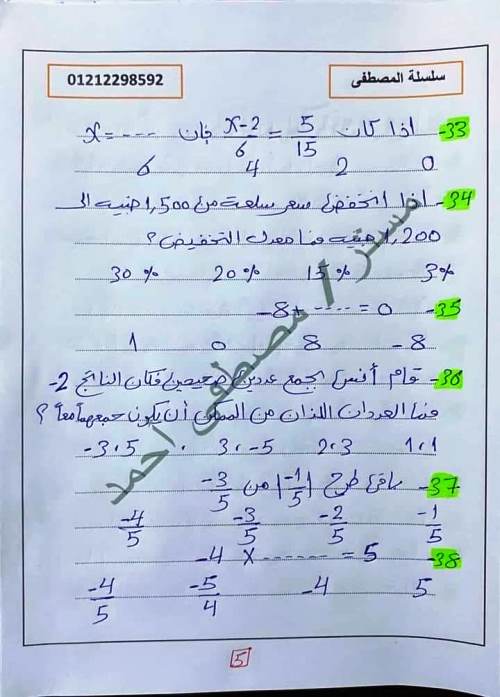 سلسلة المصطفى
01212298592
33- اذا كان x-2/6 = 5/15 فإن x = ---
0 2 4 6
34- اذا انخفض سعر سلعة من 1,500 جنيه الى
1,200 جنيه فما معدل التخفيض ؟
3% 15% 20% 30%
35- -8+ ---- = 0
-8 8 0 1
36- قام أنس بجمع عددين صحيحين فكان الناتج -2
فما العددان اللذان من الممكن أن يكون جمعهما معاً ؟
1،1 2،3 3،-5 -3،5
37- باقى طرح |-1/5| من -3/5
-1/5 -2/5 -3/5 -4/5
38- -4 × ------ = 5
5 -4 -5/4 -4/5
مستر / مصطفى احمد
5